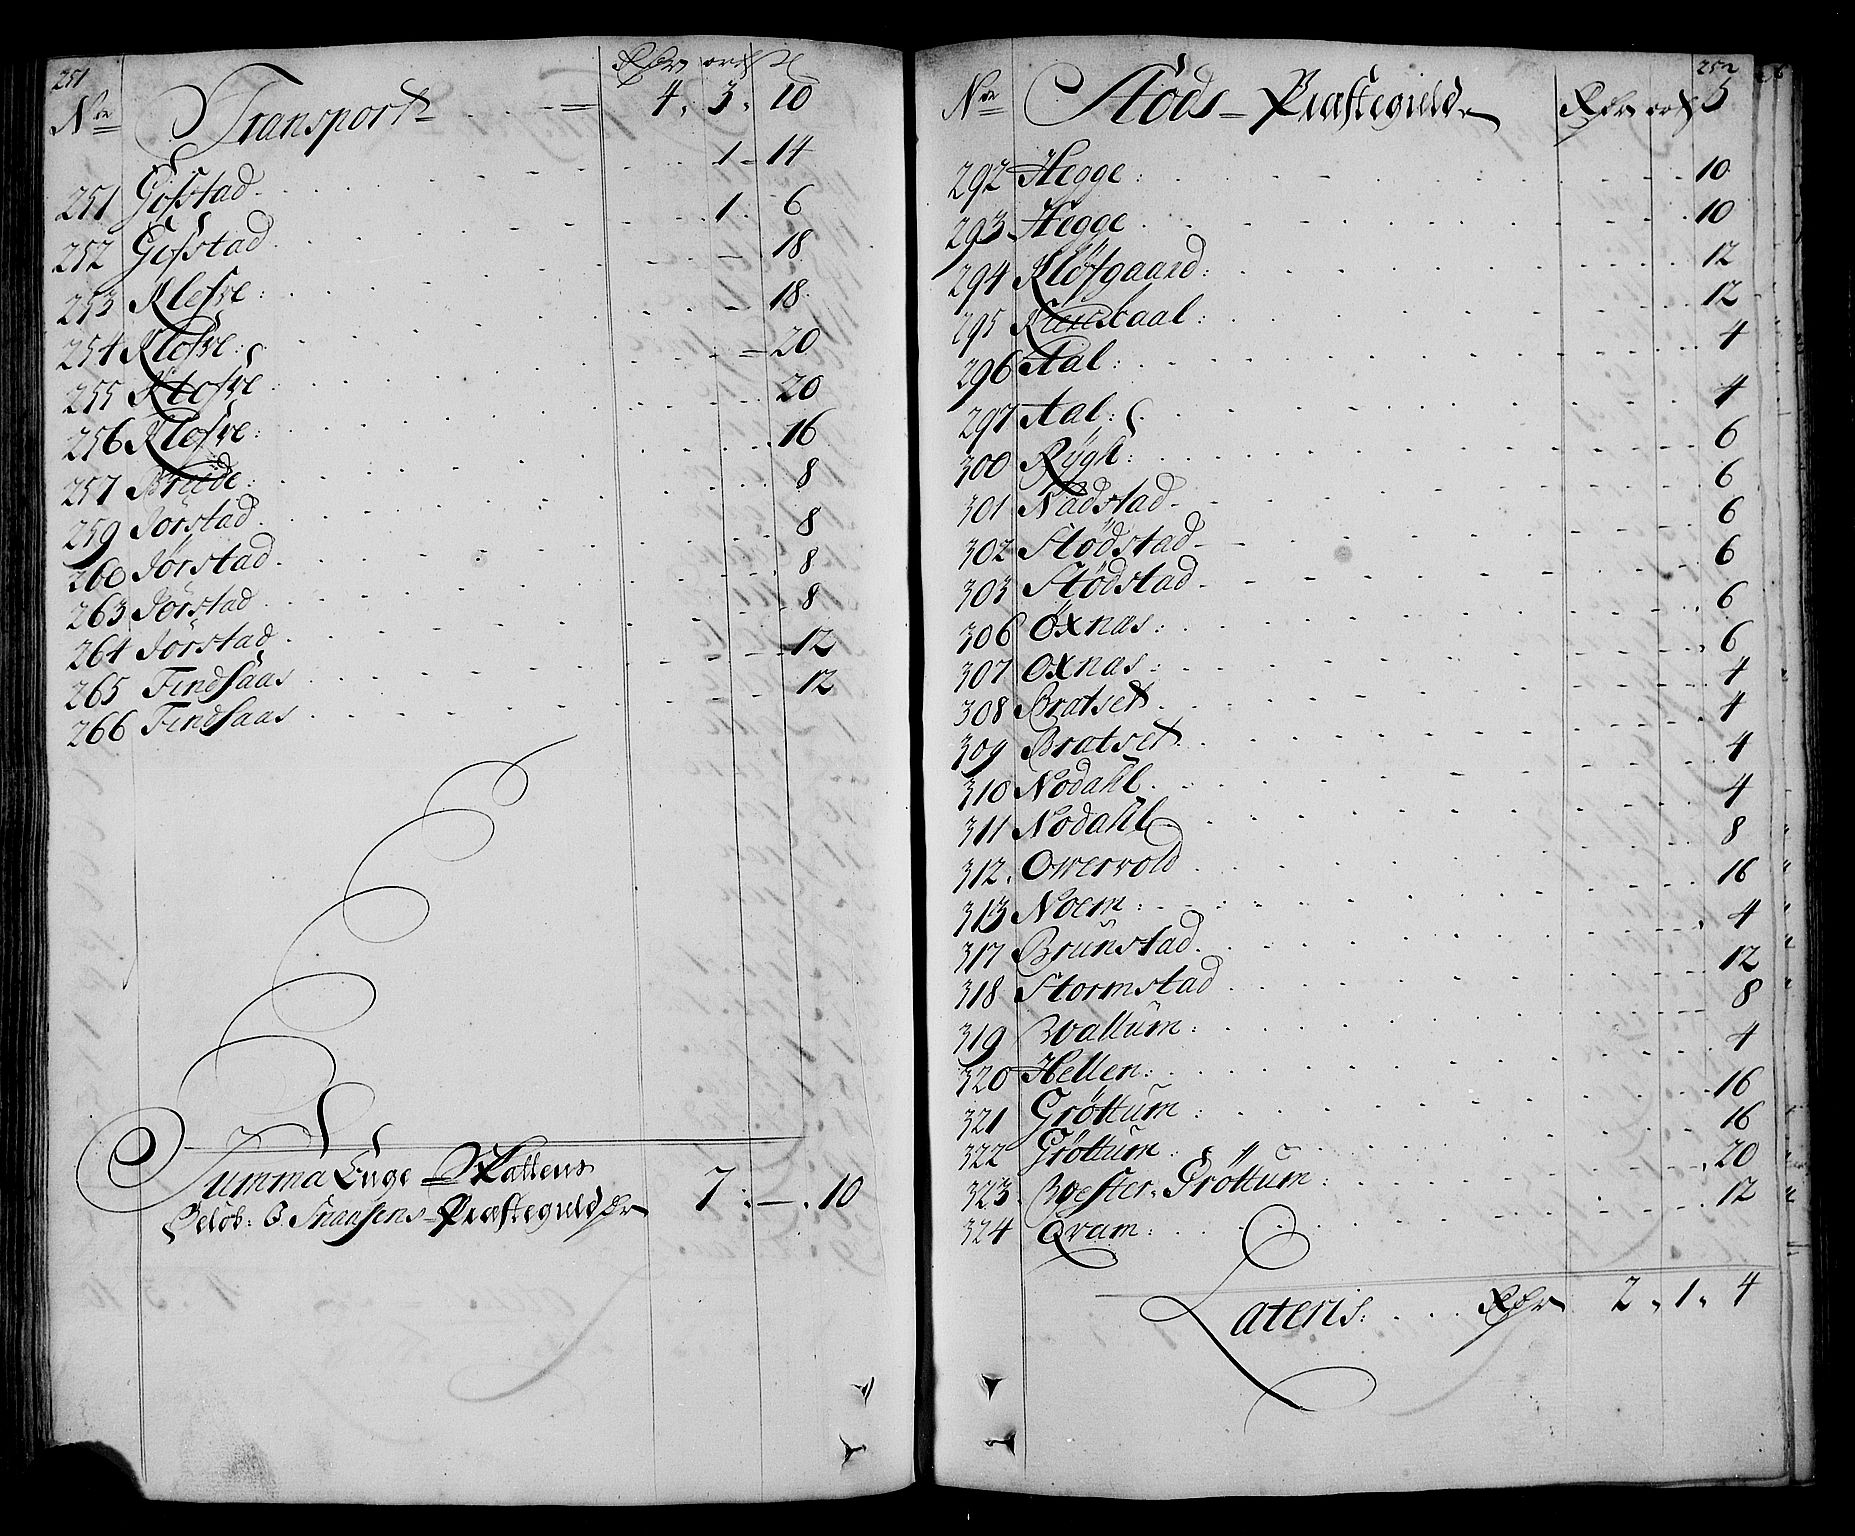 251
No Transport - 4. 3. 10
251 Gofstad 1 - 14
252 Gofstad 1 6
253 Klefve: 18
254 Klofve: 18
255 Klofve 20
256 Klofve: 20
257 Bruede: 16
259 Jörstad 8
260 Jörstad 8
263 Jörstad 8
264 Jörstad 8
265 Findsaas 12
266 Findsaas 12
Summa Leege Skattens
Belöb: I Snaasens Præstegield Rdr 7. - . 10
252
No Stods - Præstegield Rdr ort ß
292 Hegge: 10
293 Hegge 10
294 Kløfgaard: 12
295 12
296 Aal: 4
297 Aal: 4
300 Rÿgh: 6
301 Nadstad 6
302 Stödstad 6
303 Stödstad 6
306 Öxnæs: 6
307 Oxnæs: 6
308 Bratset 4
309 Bratset 4
310 Nodahl 4
311 Nodahl 4
312. Overvold 8
313 Noem: 16
317 Brunstad 4
318 Stormstad 12
319 Wallum: 8
320 Hellen: 4
321 Gröttum: 16
322 Gröttum 16
323. Wester, Gröttum: 20
324 Qvam: 12
Lateris: Rdr 2. 1. 4